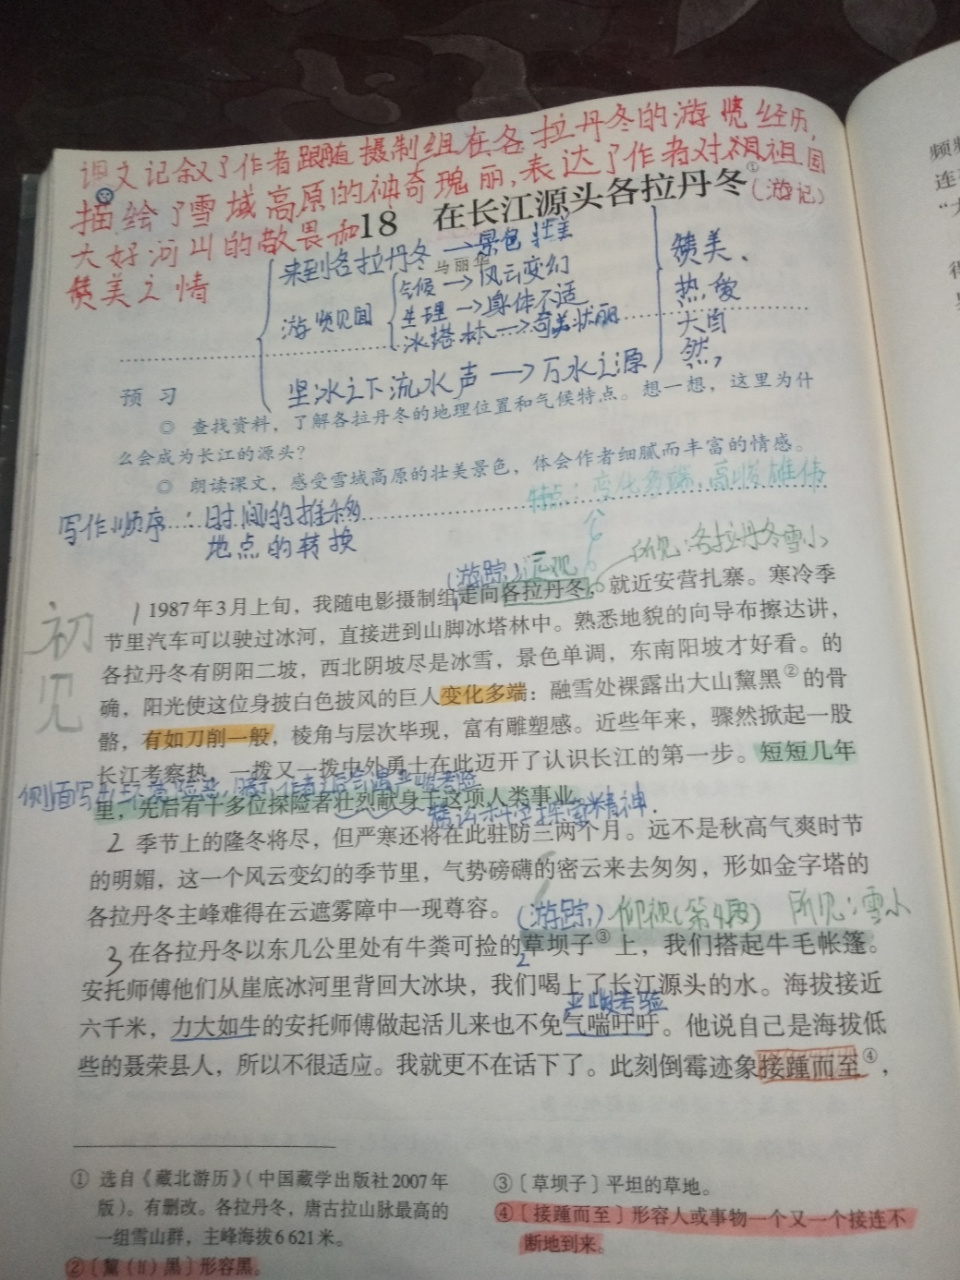 课文记叙了作者跟随摄制组在各拉丹冬的游览经历,
描绘了雪域高原的神奇瑰丽,表达了作者对祖国
大好河山的敬畏和
赞美之情
18 在长江源头各拉丹冬①
(游记)
马丽华
来到各拉丹冬→景色壮美
游览见闻
气候→风云变幻
生理→身体不适
冰塔林→奇美壮丽
坚冰之下流水声→万水之源
赞美、
热爱
大自
然,
预 习
◎ 查找资料,了解各拉丹冬的地理位置和气候特点。想一想,这里为什
么会成为长江的源头?
◎ 朗读课文,感受雪域高原的壮美景色,体会作者细腻而丰富的情感。
特点:变化多端,高峻雄伟
写作顺序:时间的推移
地点的转换
(游踪)远观
所见:各拉丹冬雪山
初见
1 1987年3月上旬,我随电影摄制组走向各拉丹冬。就近安营扎寨。寒冷季
节里汽车可以驶过冰河,直接进到山脚冰塔林中。熟悉地貌的向导布擦达讲,
各拉丹冬有阴阳二坡,西北阴坡尽是冰雪,景色单调,东南阳坡才好看。的
确,阳光使这位身披白色披风的巨人变化多端:融雪处裸露出大山黧黑②的骨
骼,有如刀削一般,棱角与层次毕现,富有雕塑感。近些年来,骤然掀起一股
长江考察热,一拨又一拨中外勇士在此迈开了认识长江的第一步。短短几年
侧面写出环境险恶
里,先后有十多位探险者壮烈献身于这项人类事业。
探索精神.
2 季节上的隆冬将尽,但严寒还将在此驻防三两个月。远不是秋高气爽时节
的明媚,这一个风云变幻的季节里,气势磅礴的密云来去匆匆,形如金字塔的
各拉丹冬主峰难得在云遮雾障中一现尊容。
(游踪)仰视(第4段) 所见:雪山
3 在各拉丹冬以东几公里处有牛粪可捡的草坝子③上,我们搭起牛毛帐篷。
2
安托师傅他们从崖底冰河里背回大冰块,我们喝上了长江源头的水。海拔接近
严峻考验
六千米,力大如牛的安托师傅做起活儿来也不免气喘吁吁。他说自己是海拔低
些的聂荣县人,所以不很适应。我就更不在话下了。此刻倒霉迹象接踵而至④,
① 选自《藏北游历》(中国藏学出版社2007年
版)。有删改。各拉丹冬,唐古拉山脉最高的
一组雪山群,主峰海拔6 621米。
②〔黧(lí)黑〕形容黑。
③〔草坝子〕平坦的草地。
④〔接踵而至〕形容人或事物一个又一个接连不
断地到来。